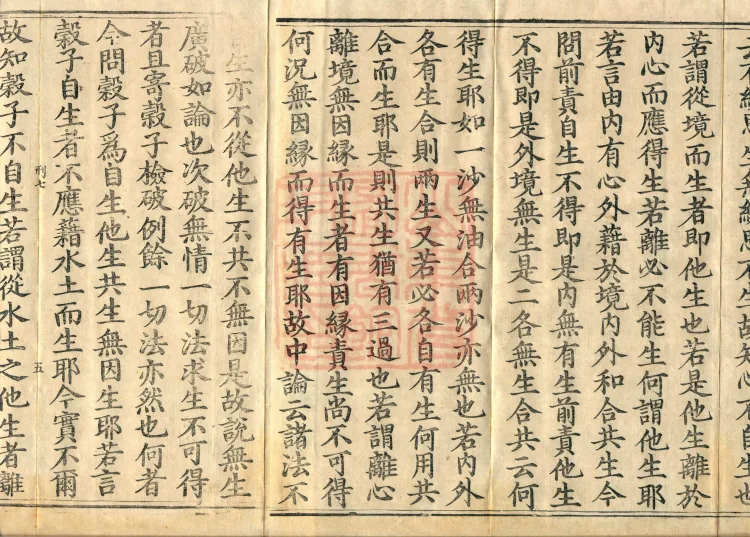 生故知心不自生也
若謂從境而生者即他生也若是他生離於
内心而應得生若離必不能生何謂他生耶
若言由内有心外藉於境内外和合共生今
問前責自生不得即是内無有生前責他生
不得即是外境無生是二各無生合共云何
得生耶如一沙無油合兩沙亦無也若内外
各有生合則兩生又若必各自有生何用共
合而生耶是則共生猶有三過也若謂離心
離境無因緣而生者有因緣責生尚不可得
何況無因緣而得有生耶故中論云諸法不
生亦不從他生不共不無因是故說無生
廣破如論也次破無情一切法求生不可得
者且寄穀子檢破例餘一切法亦然也何者
今問穀子爲自生他生共生無因生耶若言
穀子自生者不應藉水土而生耶今實不爾
刑七 五
故知穀子不自生若謂從水土之他生者離